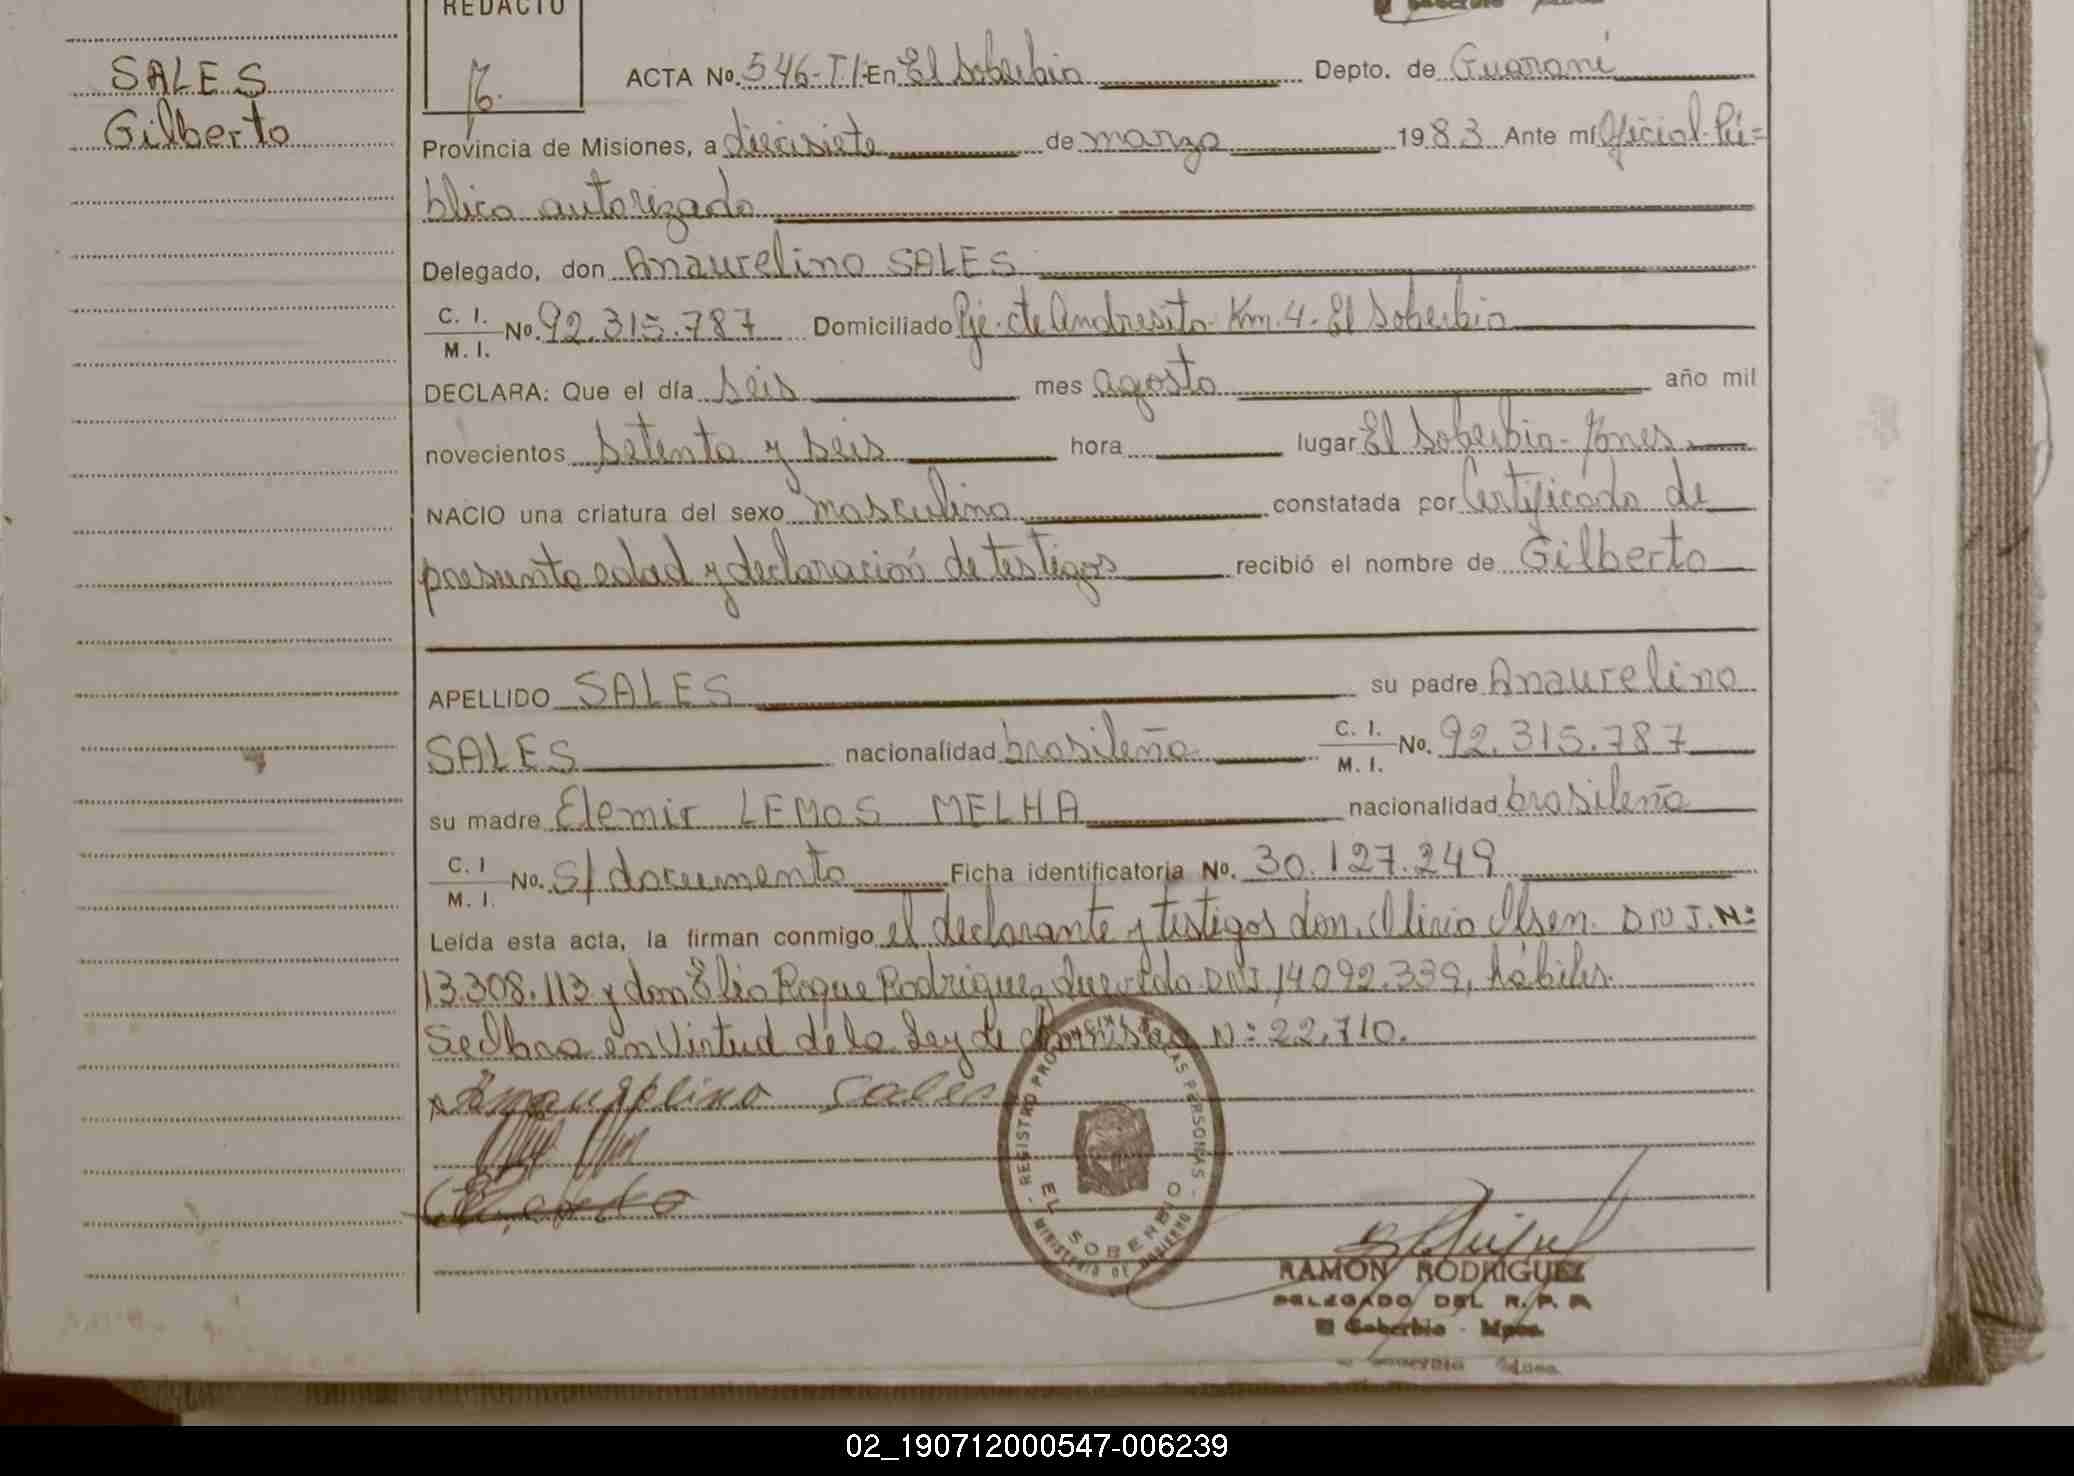 REDACTO
SALES
Gilberto
ACTA No. 546-T1- En El Soberbio Depto. de Guaraní
Provincia de Misiones, a diecisiete de marzo 1983 Ante mí Oficial Pú=
blico autorizado
Delegado, don Anaurelino SALES
C. I. M. I. No. 92.315.787 Domiciliado Pje. Cte Andresito Km. 4- El Soberbio
DECLARA: Que el día seis mes agosto año mil
novecientos setenta y seis hora lugar El Soberbio-
NACIO una criatura del sexo masculino constatada por Certificado de
presunta edad y declaración de testigos recibió el nombre de Gilberto
APELLIDO SALES su padre Anaurelino
SALES nacionalidad brasileña C. I. M. I. No. 92.315.787
su madre Elemir LEMOS MELHA nacionalidad brasileña
C. I M. I. No. S/documento Ficha identificatoria No. 30.127.249
Leída esta acta, la firman conmigo el declarante y testigos don Olsen. N:
13.308.113 y don Elio Roque Rodriguez DNI 14.092.339, hábiles.
en Virtud de la Ley de Amnistía N: 22.710.
Anaurelino Sales
REGISTRO PERSONAS
EL SOBERBIO
MINISTERIO DE GOBIERNO
RAMON RODRIGUEZ
DELEGADO DEL R. P. P.
El Soberbio - Mnes.
02_190712000547-006239